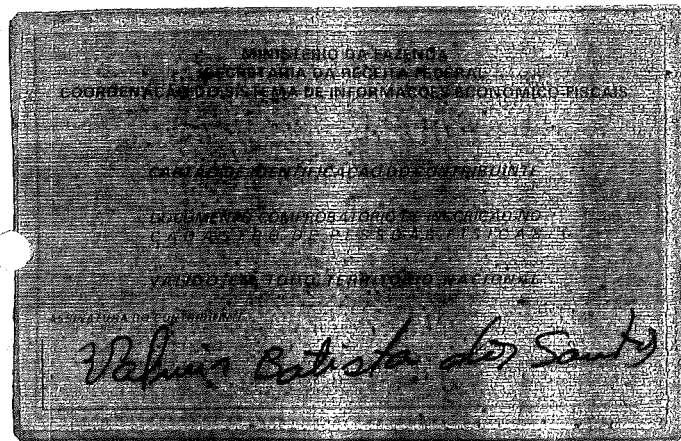 MINISTÉRIO DA FAZENDA
SECRETARIA DA RECEITA FEDERAL
COORDENAÇÃO DO SISTEMA DE INFORMAÇÕES ECONÔMICO-FISCAIS
CARTÃO DE IDENTIFICAÇÃO DO CONTRIBUINTE
DOCUMENTO COMPROBATÓRIO DE INSCRIÇÃO NO
CADASTRO DE PESSOAS FÍSICAS
VÁLIDO EM TODO TERRITÓRIO NACIONAL
ASSINATURA DO CONTRIBUINTE
Batista dos Santos